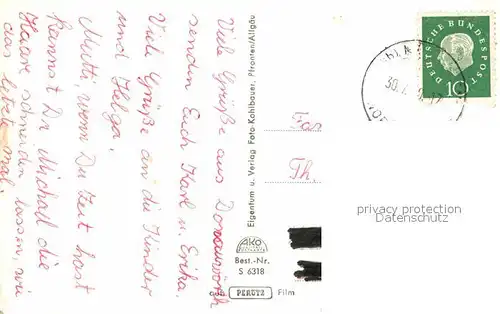 Viele Grüße aus Donauwörth
senden Euch Karl u. Erika.
Viele Grüße an die Kinder
und Helga.
Mutti, wenn Du Zeit hast
kannst Du Michael die
Haare schneiden lassen, wie
das letzte mal.
Eigentum u. Verlag Foto-Kohlbauer, Pfronten/Allgäu
AKO
Best.-Nr.
S 6318
PERUTZ Film
DEUTSCHE BUNDESPOST
10
30.
Fa
Th.
privacy protection
Datenschutz